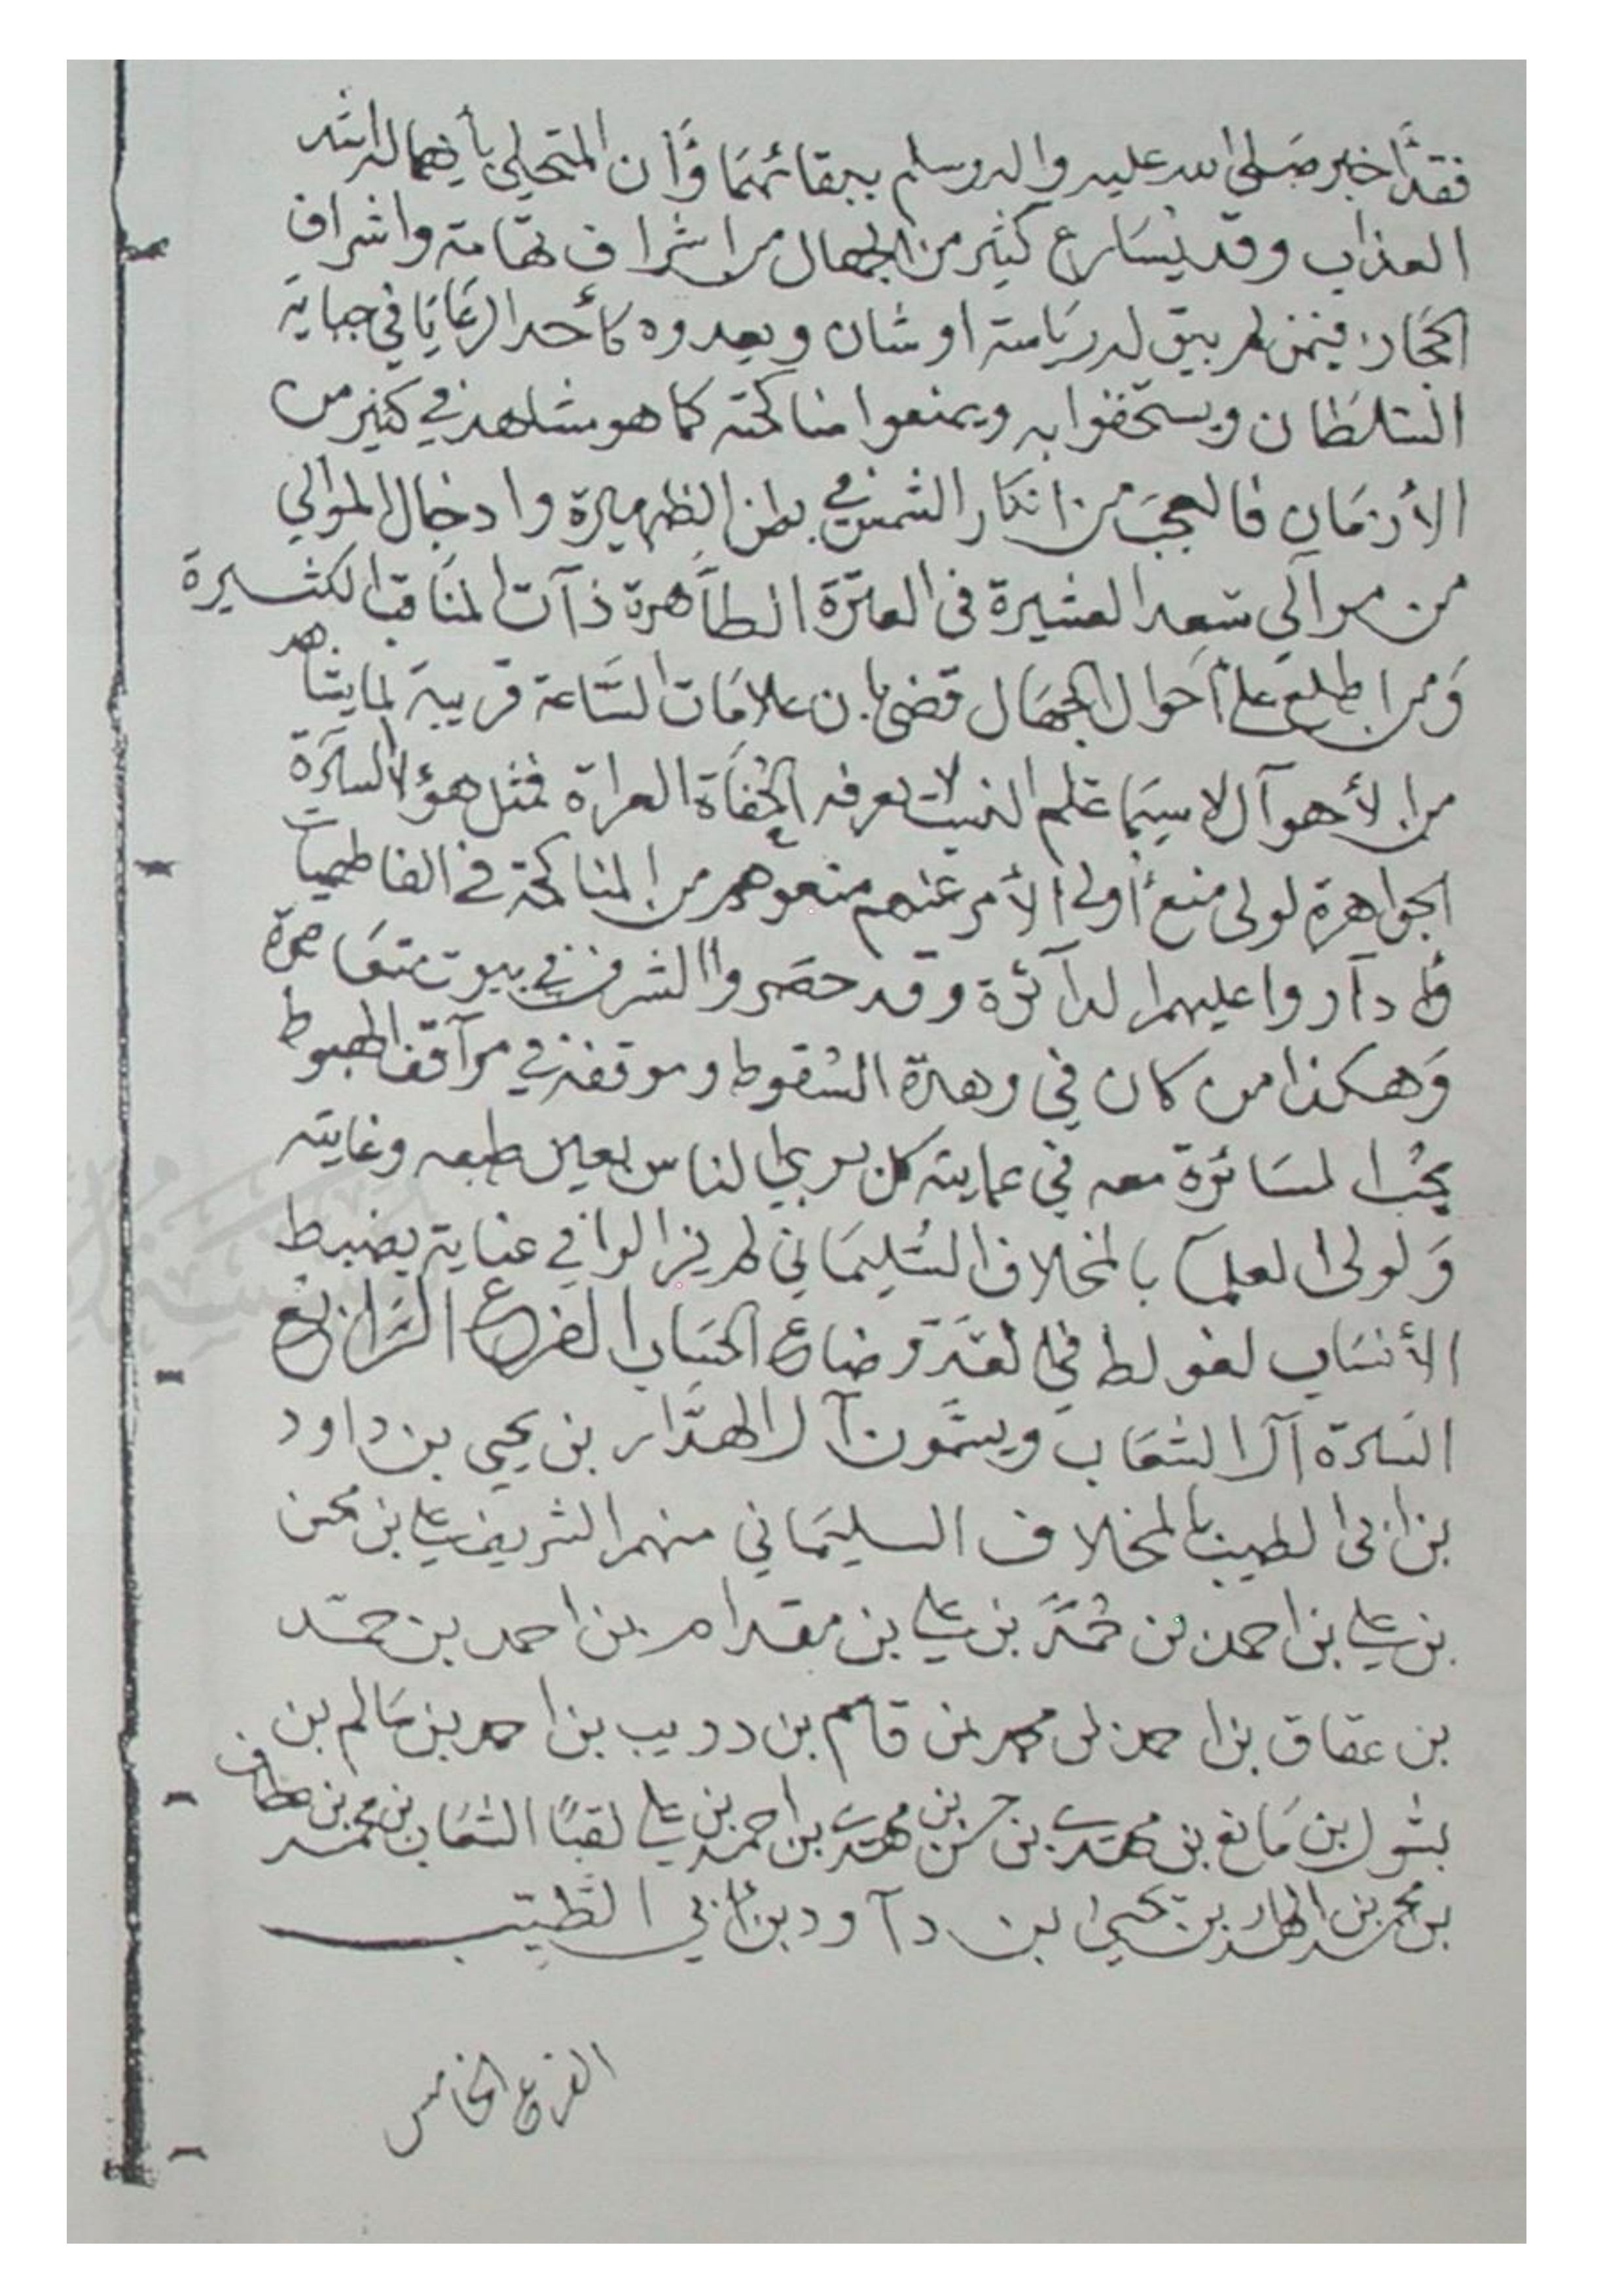 فقد أخبر صلى الله عليه واله وسلم ببقائهما وأن المتحلي بأيهما له اشد
العذاب وقد يسارع كثير من الجهال من اشراف تهامة واشراف
الحجاز فيمن لم يبق له رياسة او شان ويعدوه كأحد الرعايا في جباية
السلطان ويستخفوا به ويمنعوا مناكحته كما هو مشاهد في كثير من
الأزمان فالعجب من انكار الشمس في بطن الظهيرة وادخال الموالي
من موالي سعد العشيرة في العترة الطاهرة ذآت المناقب الكثيرة
ومن اطلع على أحوال الجهال قضى بان علامات الساعة قريبة لما يشاهد
من الأهوآل لا سيما علم النسب لا يعرفه الجفاة العراة فمثل هؤلا السادة
الجواهرة لولى منع أولى الأمر عنهم منعوهم من المناكحة في الفاطميات
ولدآروا عليهم الدآئرة وقد حصروا الشرف في بيوت متقاصرة
وهكذا من كان في وهدة السقوط وموقفه في مرآقف الهبوط
يحب المسائرة معه في عمايته كل يرى الناس بعين طبعه وغايته
ولولى العلمآ بالمخلاف السليماني لم يزالوا في عناية بضبط
الأنساب لغولط في وضاع الحساب الفرع الرابع
السادة آل الشعاب ويسمون آل الهدار بن يحيى بن داود
بن ابي الطيب بالمخلاف السليماني منهم الشريف علي بن محسن
بن علي بن احمد بن محمد بن علي بن مقدام بن احمد بن حمد
بن عقاق بن احمد بن محمد بن قاسم بن دريب بن احمد بن سالم بن
بشول بن مانع بن مهدي بن حسن بن مهدي بن احمد بن علي لقبًا الشعاب بن محمد بن مطاف
بن محمد بن الهدار بن يحيى بن دآود بن ابي الطيب
الفرع الخامس